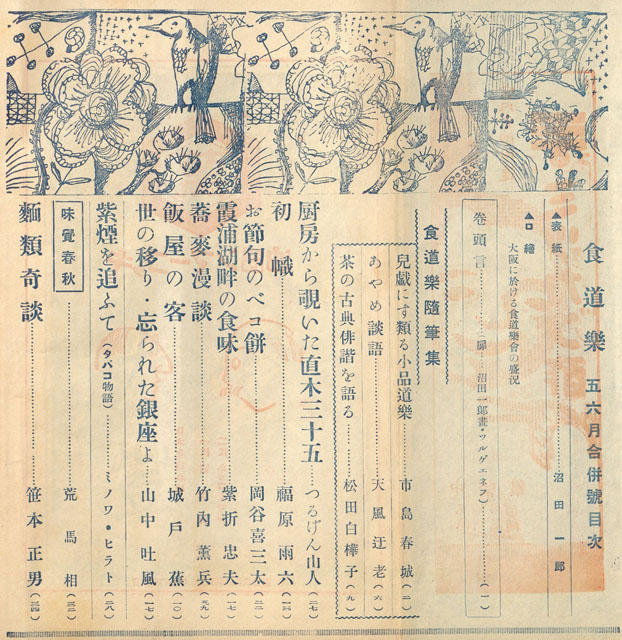 食道樂 五六月合併號目次
▲表紙……沼田一郎
▲口繪
大阪に於ける食道樂會の盛況
卷頭言……(扉 沼田一郎畫・ツルゲエネフ)……(一)
食道樂隨筆集
兒戲にす類る小品道樂……市島春城(二)
あやめ談語……天風迂老(六)
茶の古典俳諧を語る……松田白樺子(九)
厨房から覗いた直木三十五……つるげん山人(二七)
初幟……福原雨六(一三)
お節句のベコ餅……岡谷喜三太(二三)
霞浦湖畔の食味……紫折忠夫(一七)
蕎麥漫談……竹內薫兵(二九)
飯屋の客……城戶蕉(一〇)
世の移り・忘られた銀座よ……山中吐風(一七)
紫煙を追ふて(タバコ物語)……ミノワ・ヒラト(二八)
味覺春秋……荒馬相(三二)
麵類奇談……笹本正男(三四)